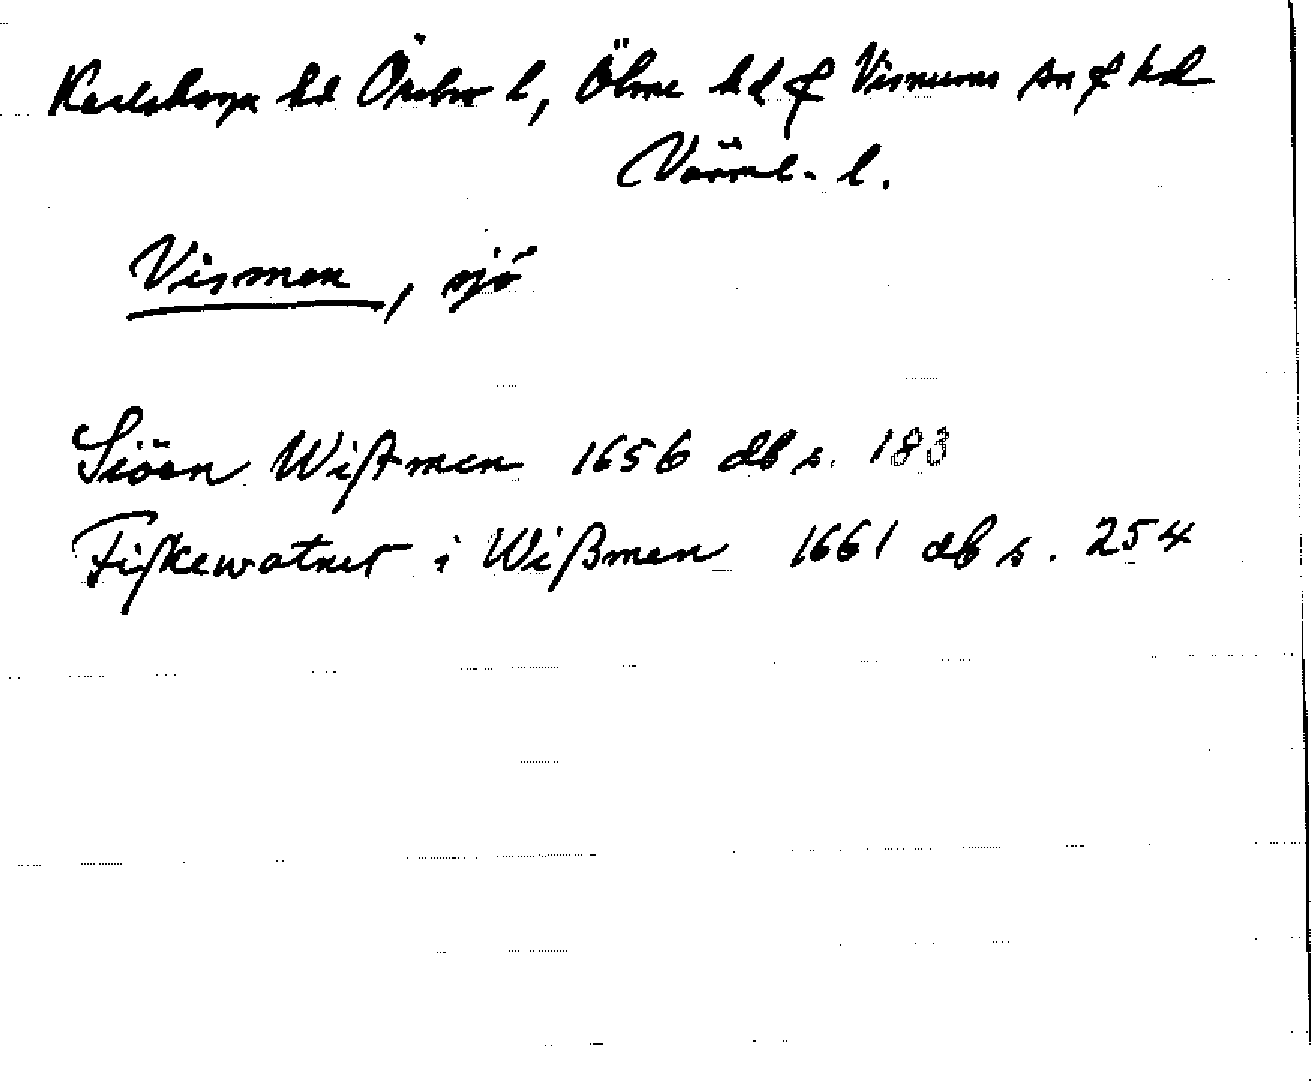 Karlskoga hd Örebro l, Ölme hd & Visnums sn & hd
Värml. l.
Vismen, sjö
Siöen Wistmen 1656 db s. 183
Fiskewatnet i Wißmen 1661 db s. 254